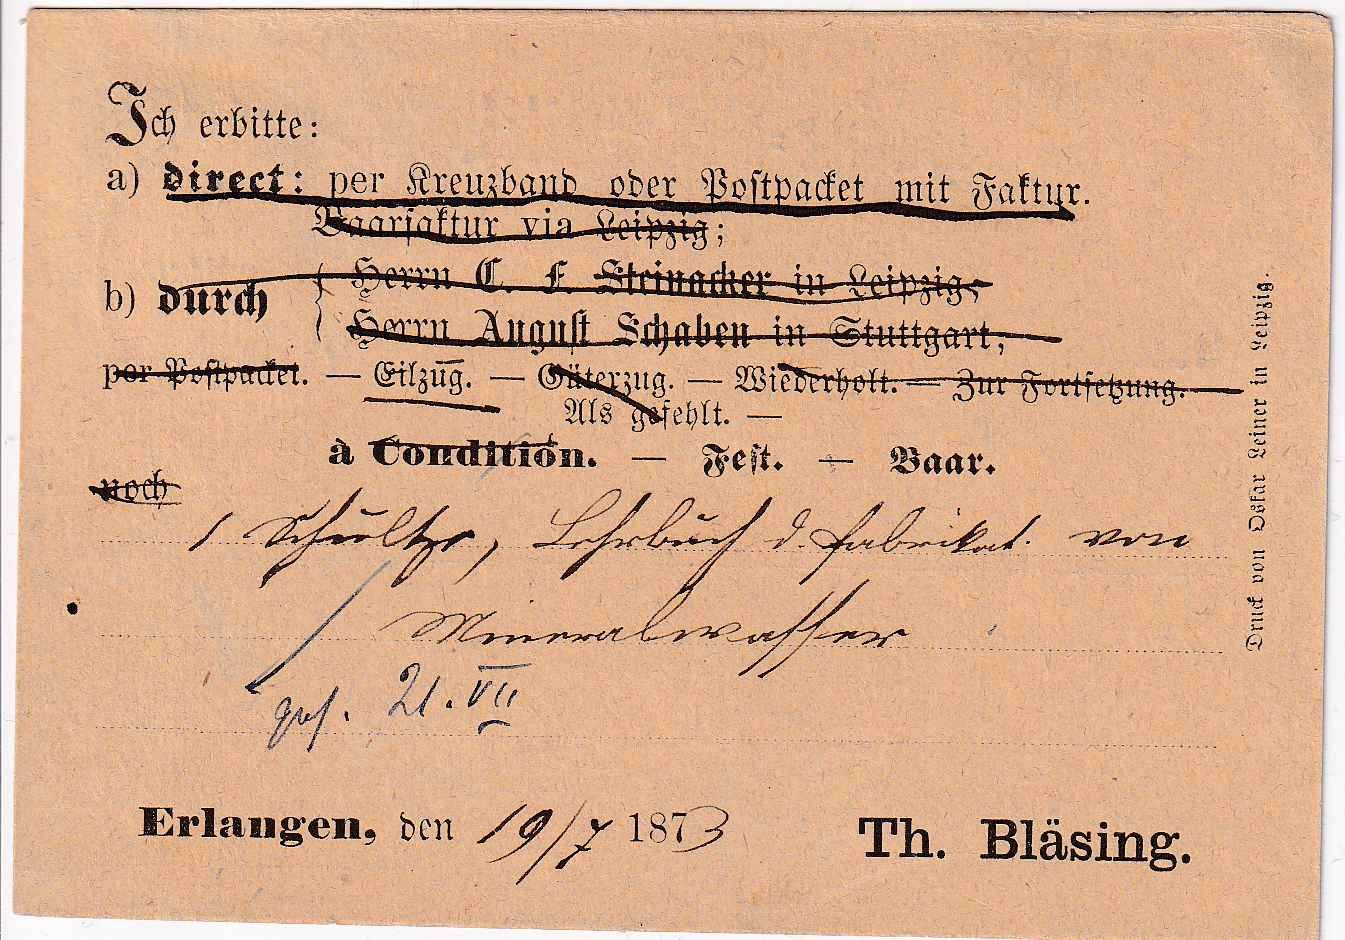 Ich erbitte:
a) direct: per Kreuzband oder Postpacket mit Faktur.
Baarfaktur via Leipzig;
b) durch { Herrn C. F. Steinacker in Leipzig,
Herrn August Schaben in Stuttgart,
per Postpacket. — Eilzug. — Güterzug. — Wiederholt. — Zur Fortsetzung.
Als gefehlt. —
à Condition. — Fest. — Baar.
noch
1 Schultze, Lehrbuch d. Fabrikat. von
Mineralwasser
21. VII
Erlangen, den 19/7 1873
Th. Bläsing.
Druck von Oskar Leiner in Leipzig.